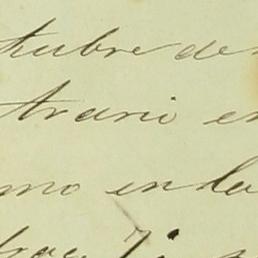 tubre de
trario en
mo en la